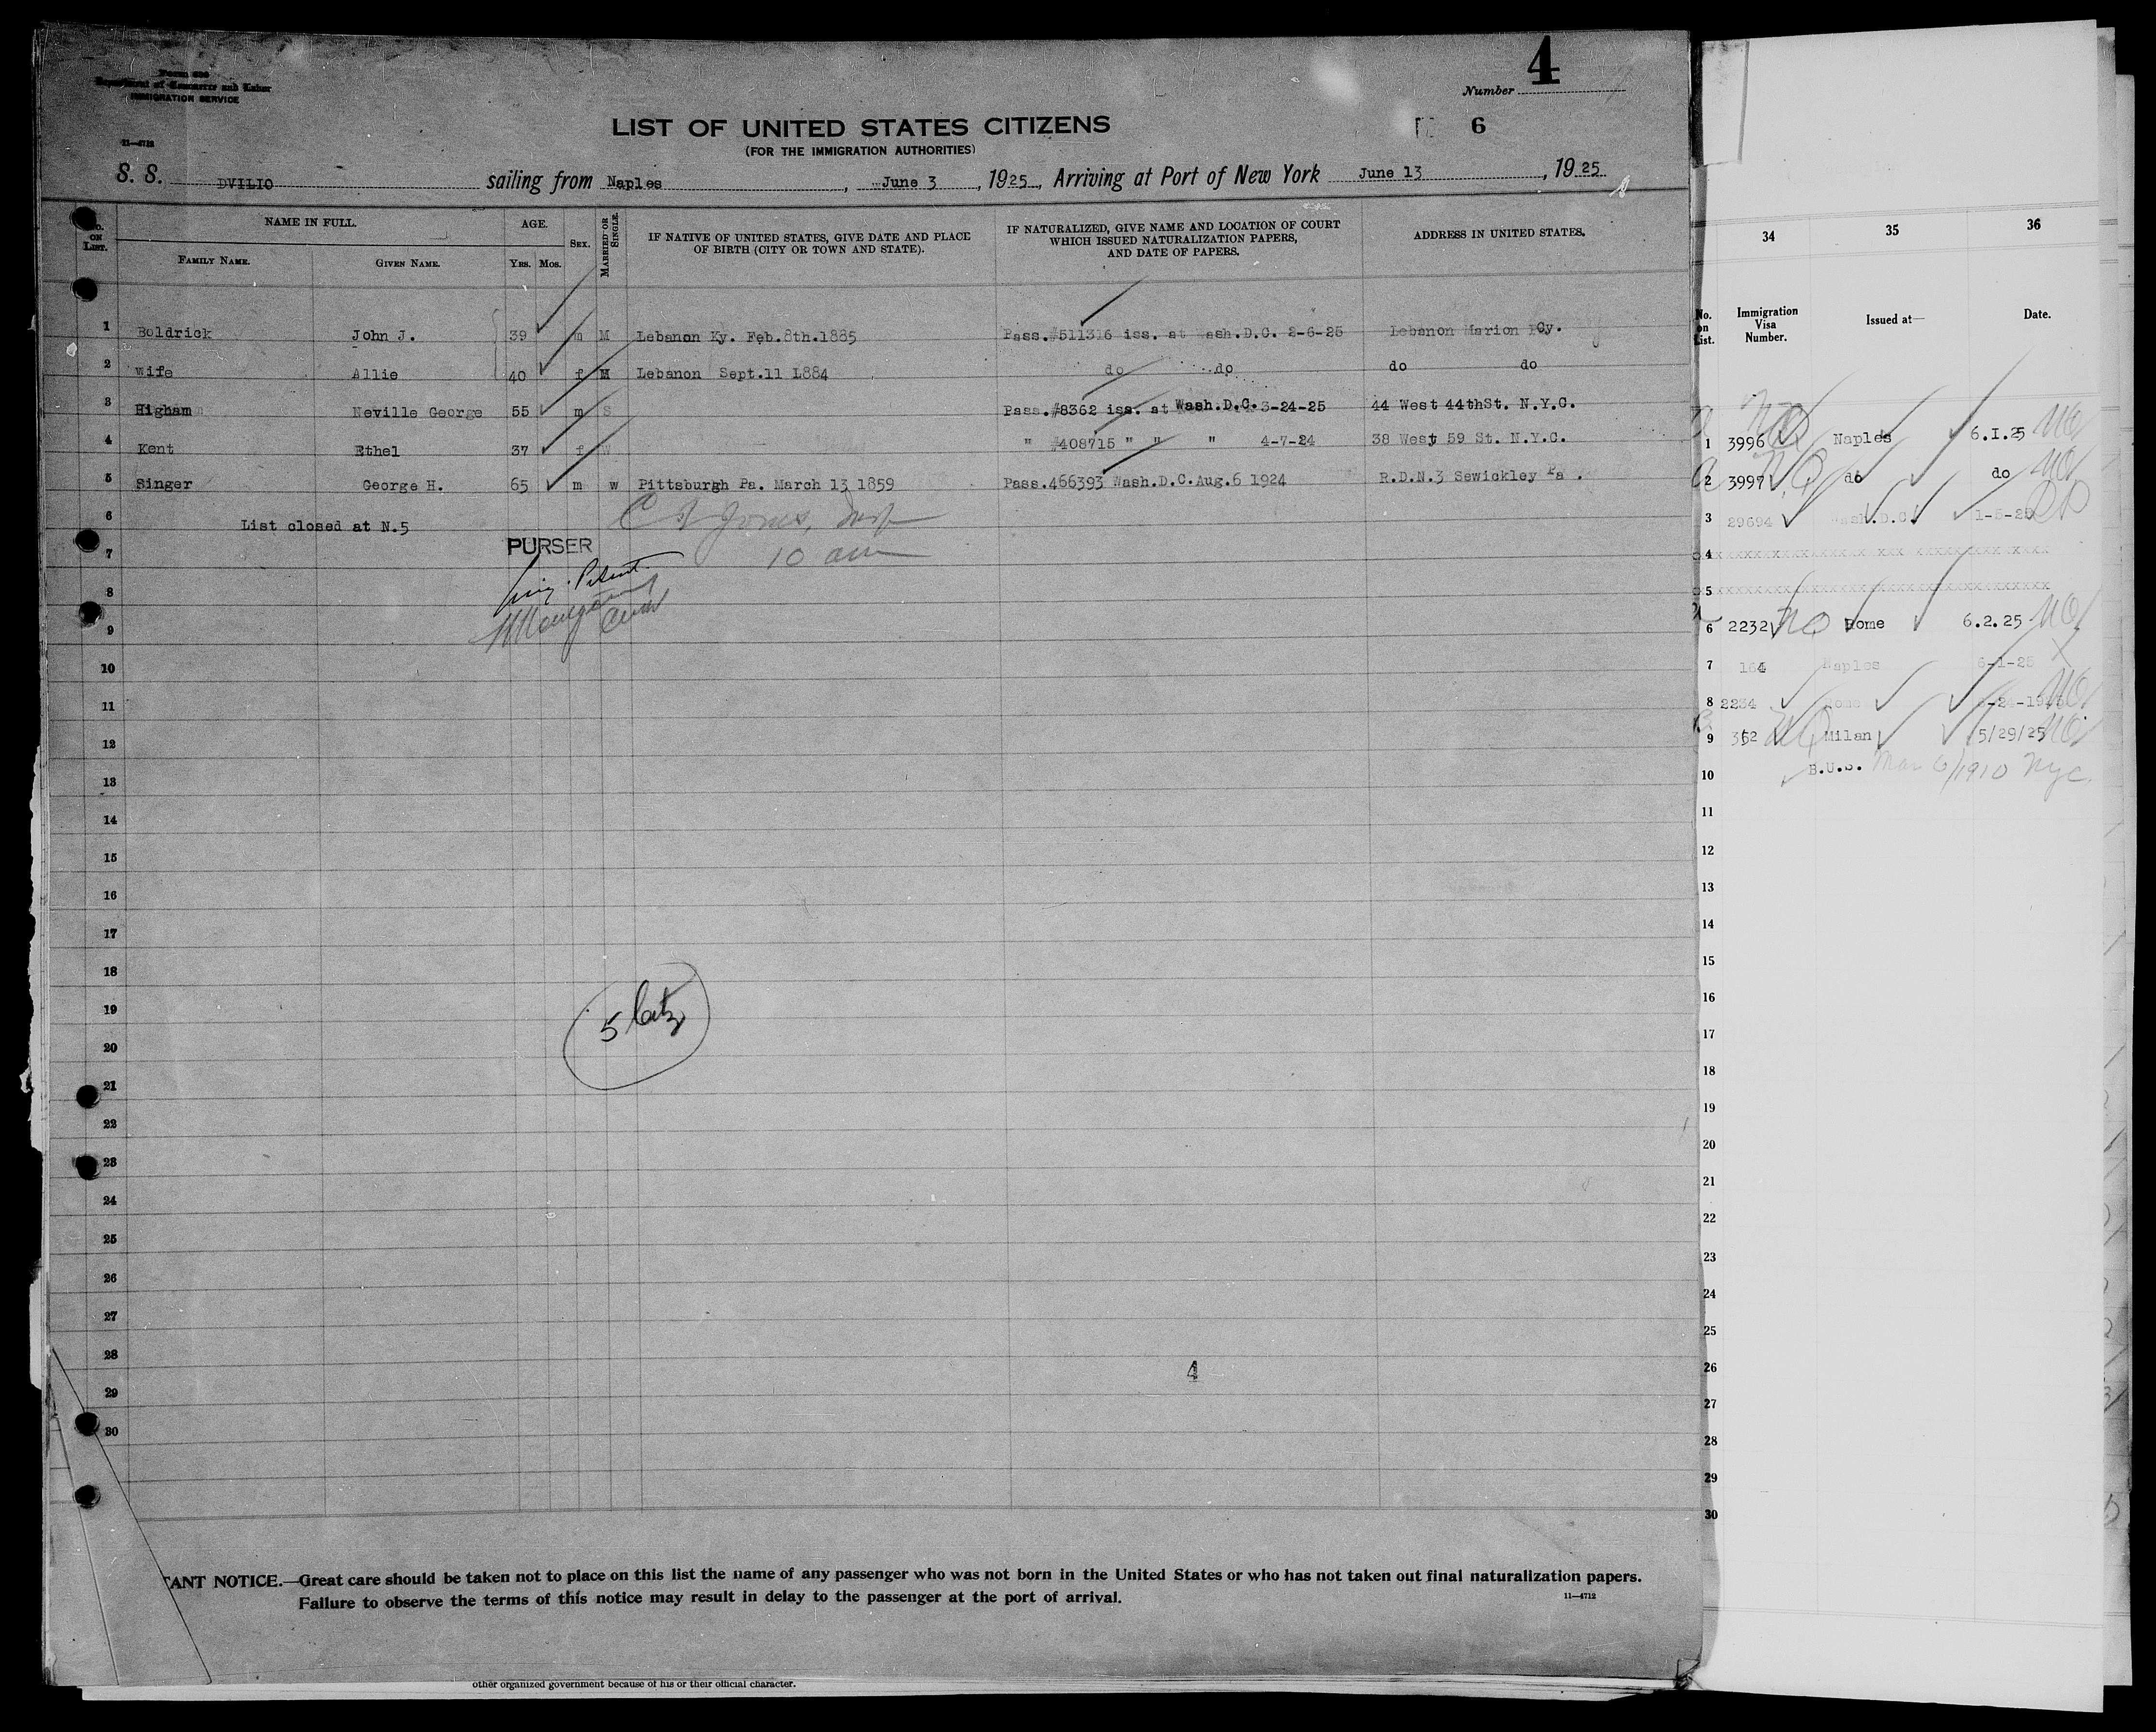 Form 630
Department of Commerce and Labor
IMMIGRATION SERVICE
11—4712
4
Number
6
LIST OF UNITED STATES CITIZENS
(FOR THE IMMIGRATION AUTHORITIES)
S. S. DVILIO sailing from Naples, June 3, 1925, Arriving at Port of New York June 13, 1925
No. ON LIST. NAME IN FULL. AGE. SEX. MARRIED OR SINGLE. IF NATIVE OF UNITED STATES, GIVE DATE AND PLACE OF BIRTH (CITY OR TOWN AND STATE). IF NATURALIZED, GIVE NAME AND LOCATION OF COURT WHICH ISSUED NATURALIZATION PAPERS, AND DATE OF PAPERS. ADDRESS IN UNITED STATES.
FAMILY NAME. GIVEN NAME. YRS. MOS.
1 Boldrick John J. 39 m M Lebanon Ky. Feb.8th.1885 Pass.#511316 iss. at Wash.D.C. 2-6-25 Lebanon Marion Cy.
2 wife Allie 40 f M Lebanon Sept.11 L884 do do do do
3 Higham Neville George 55 m S Pass.#8362 iss. at Wash.D.C. 3-24-25 44 West 44thSt. N.Y.C.
4 Kent Ethel 37 f W " #408715 " " " 4-7-24 38 West 59 St. N.Y.C.
5 Singer George H. 65 m w Pittsburgh Pa. March 13 1859 Pass.466393 Wash.D.C.Aug.6 1924 R.D.N.3 Sewickley Pa .
6 List closed at N.5
PURSER
10 am
7
8
9
10
11
12
13
14
15
16
17
18
19
20
21
22
23
24
25
26
27
28
29
30
5 Citz
4
TANT NOTICE.—Great care should be taken not to place on this list the name of any passenger who was not born in the United States or who has not taken out final naturalization papers.
Failure to observe the terms of this notice may result in delay to the passenger at the port of arrival.
11—4712
other organized government because of his or their official character.
34 35 36
No. on List. Immigration Visa Number. Issued at— Date.
1 3996 Naples 6.I.25
2 3997 do do
3 29694 Wash.D.C.
4 xxxxxxxxxxxxxxxxxx xxx xxxxxxxxxxxxxxxxx
5 xxxxxxxxxxxxxxxxxxxxxxxxxxxxxxxxxxxxxxxx
6 2232 Rome 6.2.25
7 164 Naples 6-1-25
8 2234 Rome
9 352 Milan 5/29/25
10 B.U.S. Mar 6/1910 Nyc
11
12
13
14
15
16
17
18
19
20
21
22
23
24
25
26
27
28
29
30